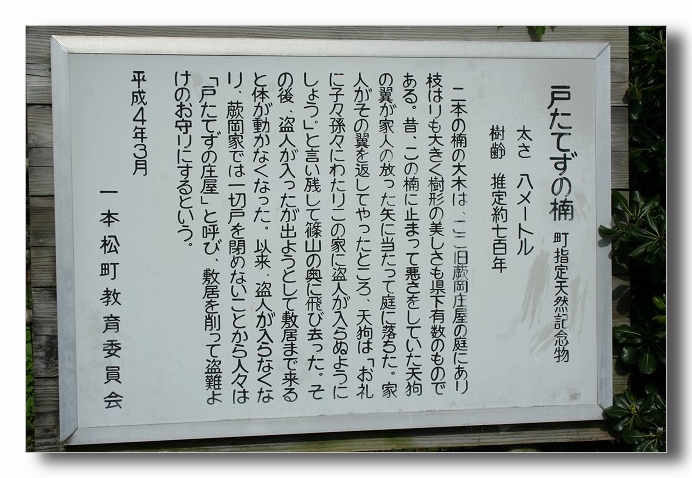 戸たてずの楠 町指定天然記念物
太さ 八メートル
樹齢 推定約七百年
二本の楠の大木は、ここ旧蕨岡庄屋の庭にあり
枝はりも大きく樹形の美しさも県下有数のもので
ある。昔、この楠に止まって悪さをしていた天狗
の翼が家人の放った矢に当たって庭に落ちた。家
人がその翼を返してやったところ、天狗は「お礼
に子々孫々にわたりこの家に盗人が入らぬように
しょう」と言い残して篠山の奥に飛び去った。そ
の後、盗人が入ったが出ようとして敷居まで来る
と体が動かなくなった。以来、盗人が入らなくな
り、蕨岡家では一切戸を閉めないことから人々は
「戸たてずの庄屋」と呼び、敷居を削って盗難よ
けのお守りにするという。
平成４年３月
一本松町教育委員会